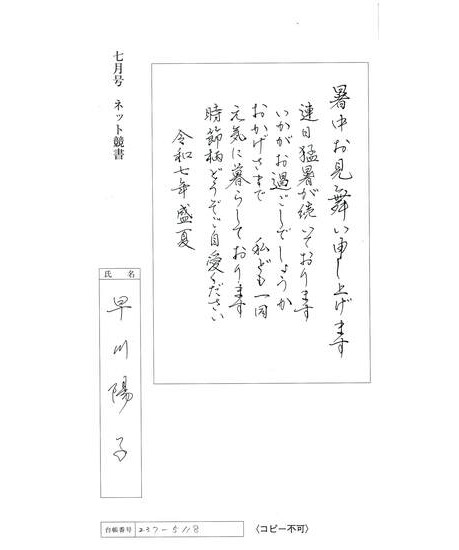 暑中お見舞い申し上げます
連日猛暑が続いております
いかがお過ごしでしょうか
おかげさまで 私ども一同
元気に暮らしております
時節柄どうぞご自愛ください
令和七年盛夏
七月号 ネット競書
氏名
早川陽子
台帳番号 237-5118
〈コピー不可〉